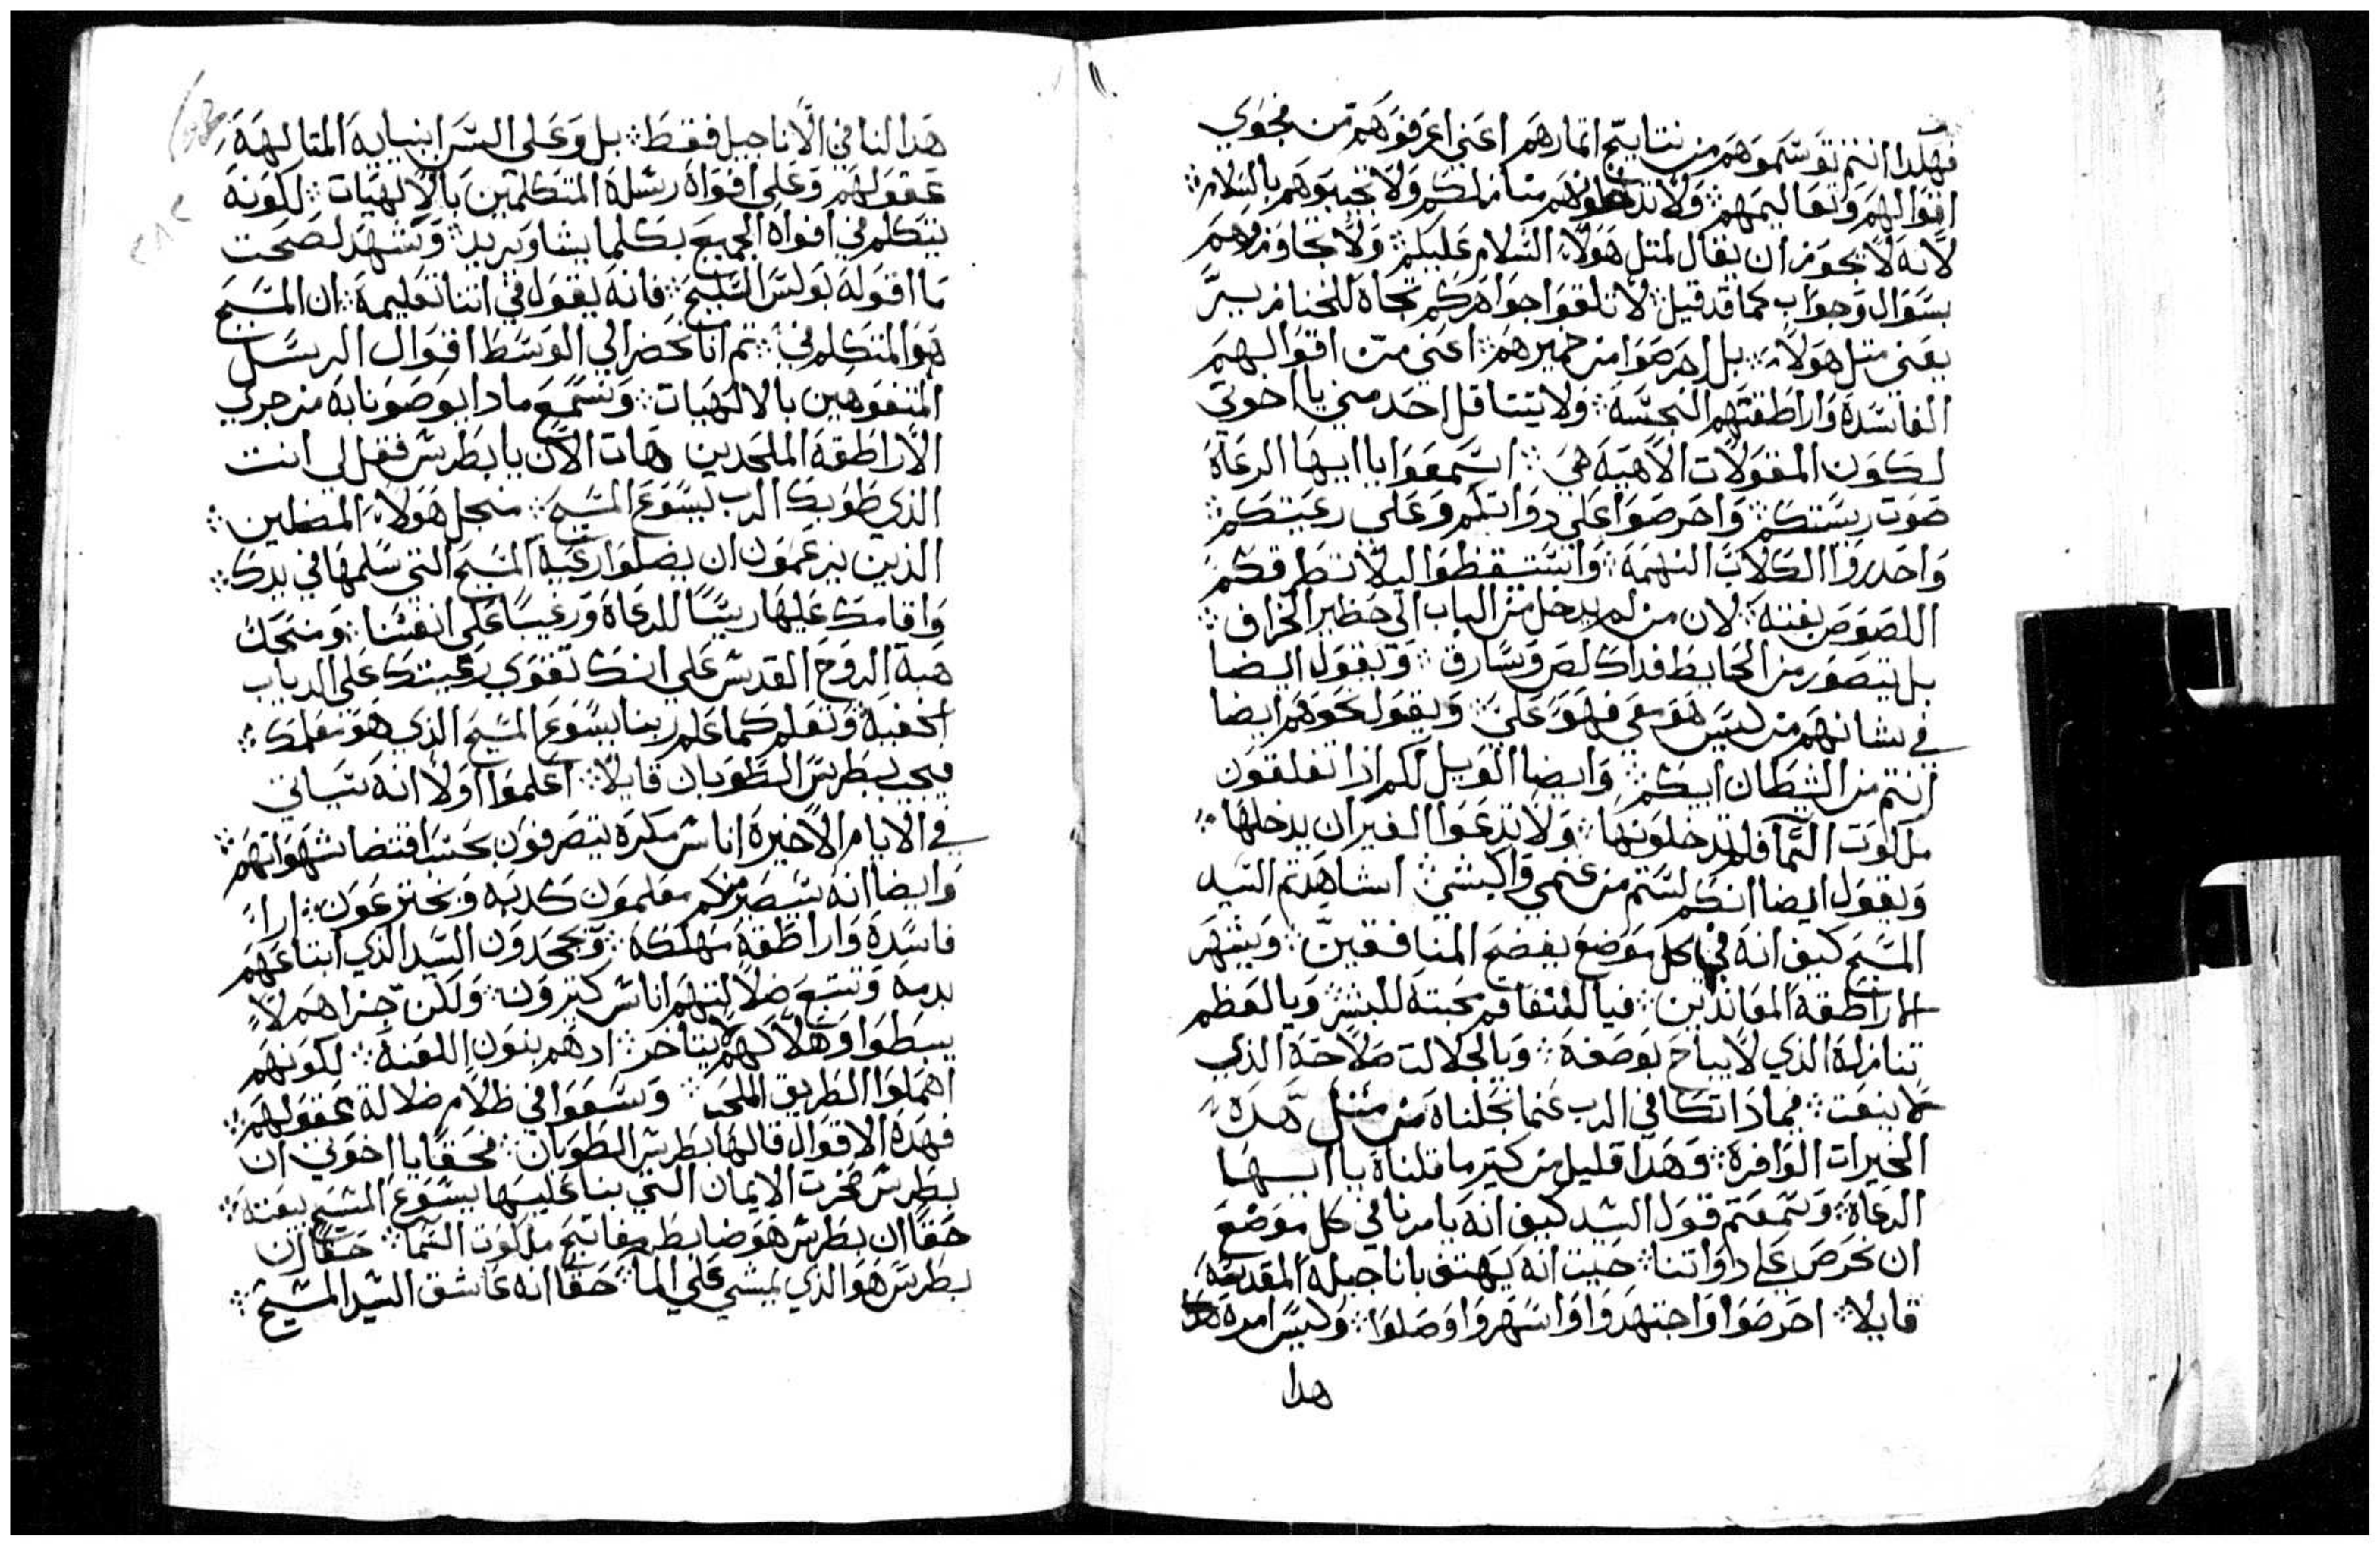 فهكدا انتم توسموهم من نتايج اتمارهم اعني اعرفوهم من فحوي
اقوالهم وتعاليمهم ⁘ ولا تدخلوهم منازلكم ولا تجيبوهم بالسلام ⁘
لانه لا يجوز ان يقال لمتل هولاء السلام عليكم ⁘ ولا تجاوزوهم
بسوال وجواب كما قد قيل ⁘ لا تلقوا جواهركم تجاه للخنازير
يعني متل هولاء ⁘ بل احرصوا من خميرهم ⁘ اعني من اقوالهم
الفاسده واراطقتهم النجسه ⁘ ولا يتتاقل احد مني يا اخوتي
لكون المقولات الاهيه هي ⁘ اسمعوا يا ايها الرعاة
صوت ريستكم ⁘ واحرصوا علي دواتكم وعلي رعيتكم ⁘
واحدروا الكلاب النهمه ⁘ واستيقظوا ليلا تطرقكم
اللصوص بغته ⁘ لان من لم يدخل من الباب الي حظير الخراف ⁘
بل يتصور من الحايط فداك لص وسارق ⁘ ويقول ايضا
في شانهم من ليس هو معي فهو علي ⁘ ويقول نحوهم ايضا
انتم من الشيطان ابيكم ⁘ وايضا الويل لكم ادا تغلقون
ملكوت السما فلم تدخلونها ⁘ ولا تدعوا الغير ان يدخلها ⁘
ويقول ايضا انكم لستم من غنمي وكبشي ⁘ اشاهدتم السيد
المسيح كيف انه في كل موضع يفضح المنافقين ⁘ ويشهر
الاراطقه المعاندين ⁘ فيا لتفاقم محبته للبشر ⁘ ويا لعظم
تنازله الذي لا يباح بوصفه ⁘ ويا لجلالت صلاحه الذي
لا ينعت ⁘ فمادا نكافي الرب عنما نجلناه من متل هده
الخيرات الوافرة ⁘ وهدا قليل من كتير ما قلناه يا ايها
الرعاة ⁘ وسمعتم قول السيد كيف انه يامرنا في كل موضع
ان نحرص علي دواتنا ⁘ حيت انه يهتف باناجيله المقدسه
قايلا ⁘ احرصوا واجتهدوا واسهروا وصلوا ⁘ وليس امره هدا
هدا
هدا لنا في الاناجيل فقط ⁘ بل وعلي السن انبيايه المتالهه
عقولهم وعلي افواه رسله المتكلمين بالالهيات ⁘ لكونه
يتكلم في افواه الجميع بكلما يشا ويريد ⁘ وتشهد لصحت
ما اقوله بولس السليح ⁘ فانه يقول في اتنا تعليمه ⁘ ان المسيح
هو المتكلم في ⁘ تم انا نحضر الي الوسط اقوال الرسل
المتفوهين بالالهيات ⁘ ونسمع مادا يوصونا به من جري
الاراطقه الملحدين هات الان يا بطرس فقل لي انت
الذي طوبك الرب يسوع المسيح ⁘ منجل هولاء المضلين ⁘
الذين يزعمون ان يضلوا رعية المسيح التي سلمها في يدك ⁘
واقامك عليها ريسا للرعاة ورعيسا علي انفسنا ⁘ ومنحك
هبة الروح القدس علي انك تقوي رعيتك علي الدياب
الخفيه وتعلم كما علم ربنا يسوع المسيح الذي هو معلمك ⁘
فيجيب بطرس الطوبان قايلا ⁘ اعلموا اولا انه سياتي
في الايام الاخيرة اناس مكره يتصرفون بحسب اقتضا شهواتهم ⁘
وايضا انه سيصير منكم معلمون كدبه ويخترعون ⁘ ارا
فاسدة واراطقة مهلكه ⁘ ويجحدون السيد الذي ابتاعهم
بدمه ويتبع ضلالتهم اناس كتيرون ⁘ ولكن جزاهم لا
يبطوا وهلاكهم لا يتاخر ⁘ ادهم بنون اللعنه ⁘ لكونهم
اهملوا الطريق الملحب ⁘ وسعوا في ظلام ضلالة عقولهم ⁘
فهده الاقوال قالها بطرس الطوبان ⁘ فحقا يا اخوتي ان
بطرس صخرت الايمان التي بنا عليها يسوع المسيح بيعته ⁘
حقا ان بطرس هو ضابط مفاتيح ملكوت السما ⁘ حقا ان
بطرس هو الذي يمشي علي الما ⁘ حقا انه عاشق السيد المسيح ⁘